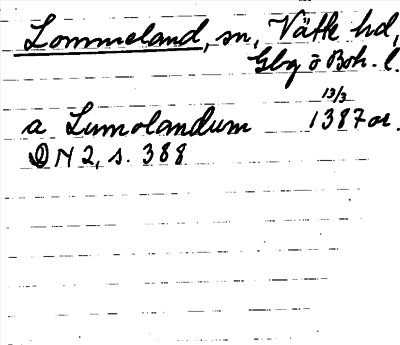 Lommeland, sn, Vätte hd,
Gbg o Boh. l.
13/3
a Lumolandum 1387 or.
DN 2, s. 388